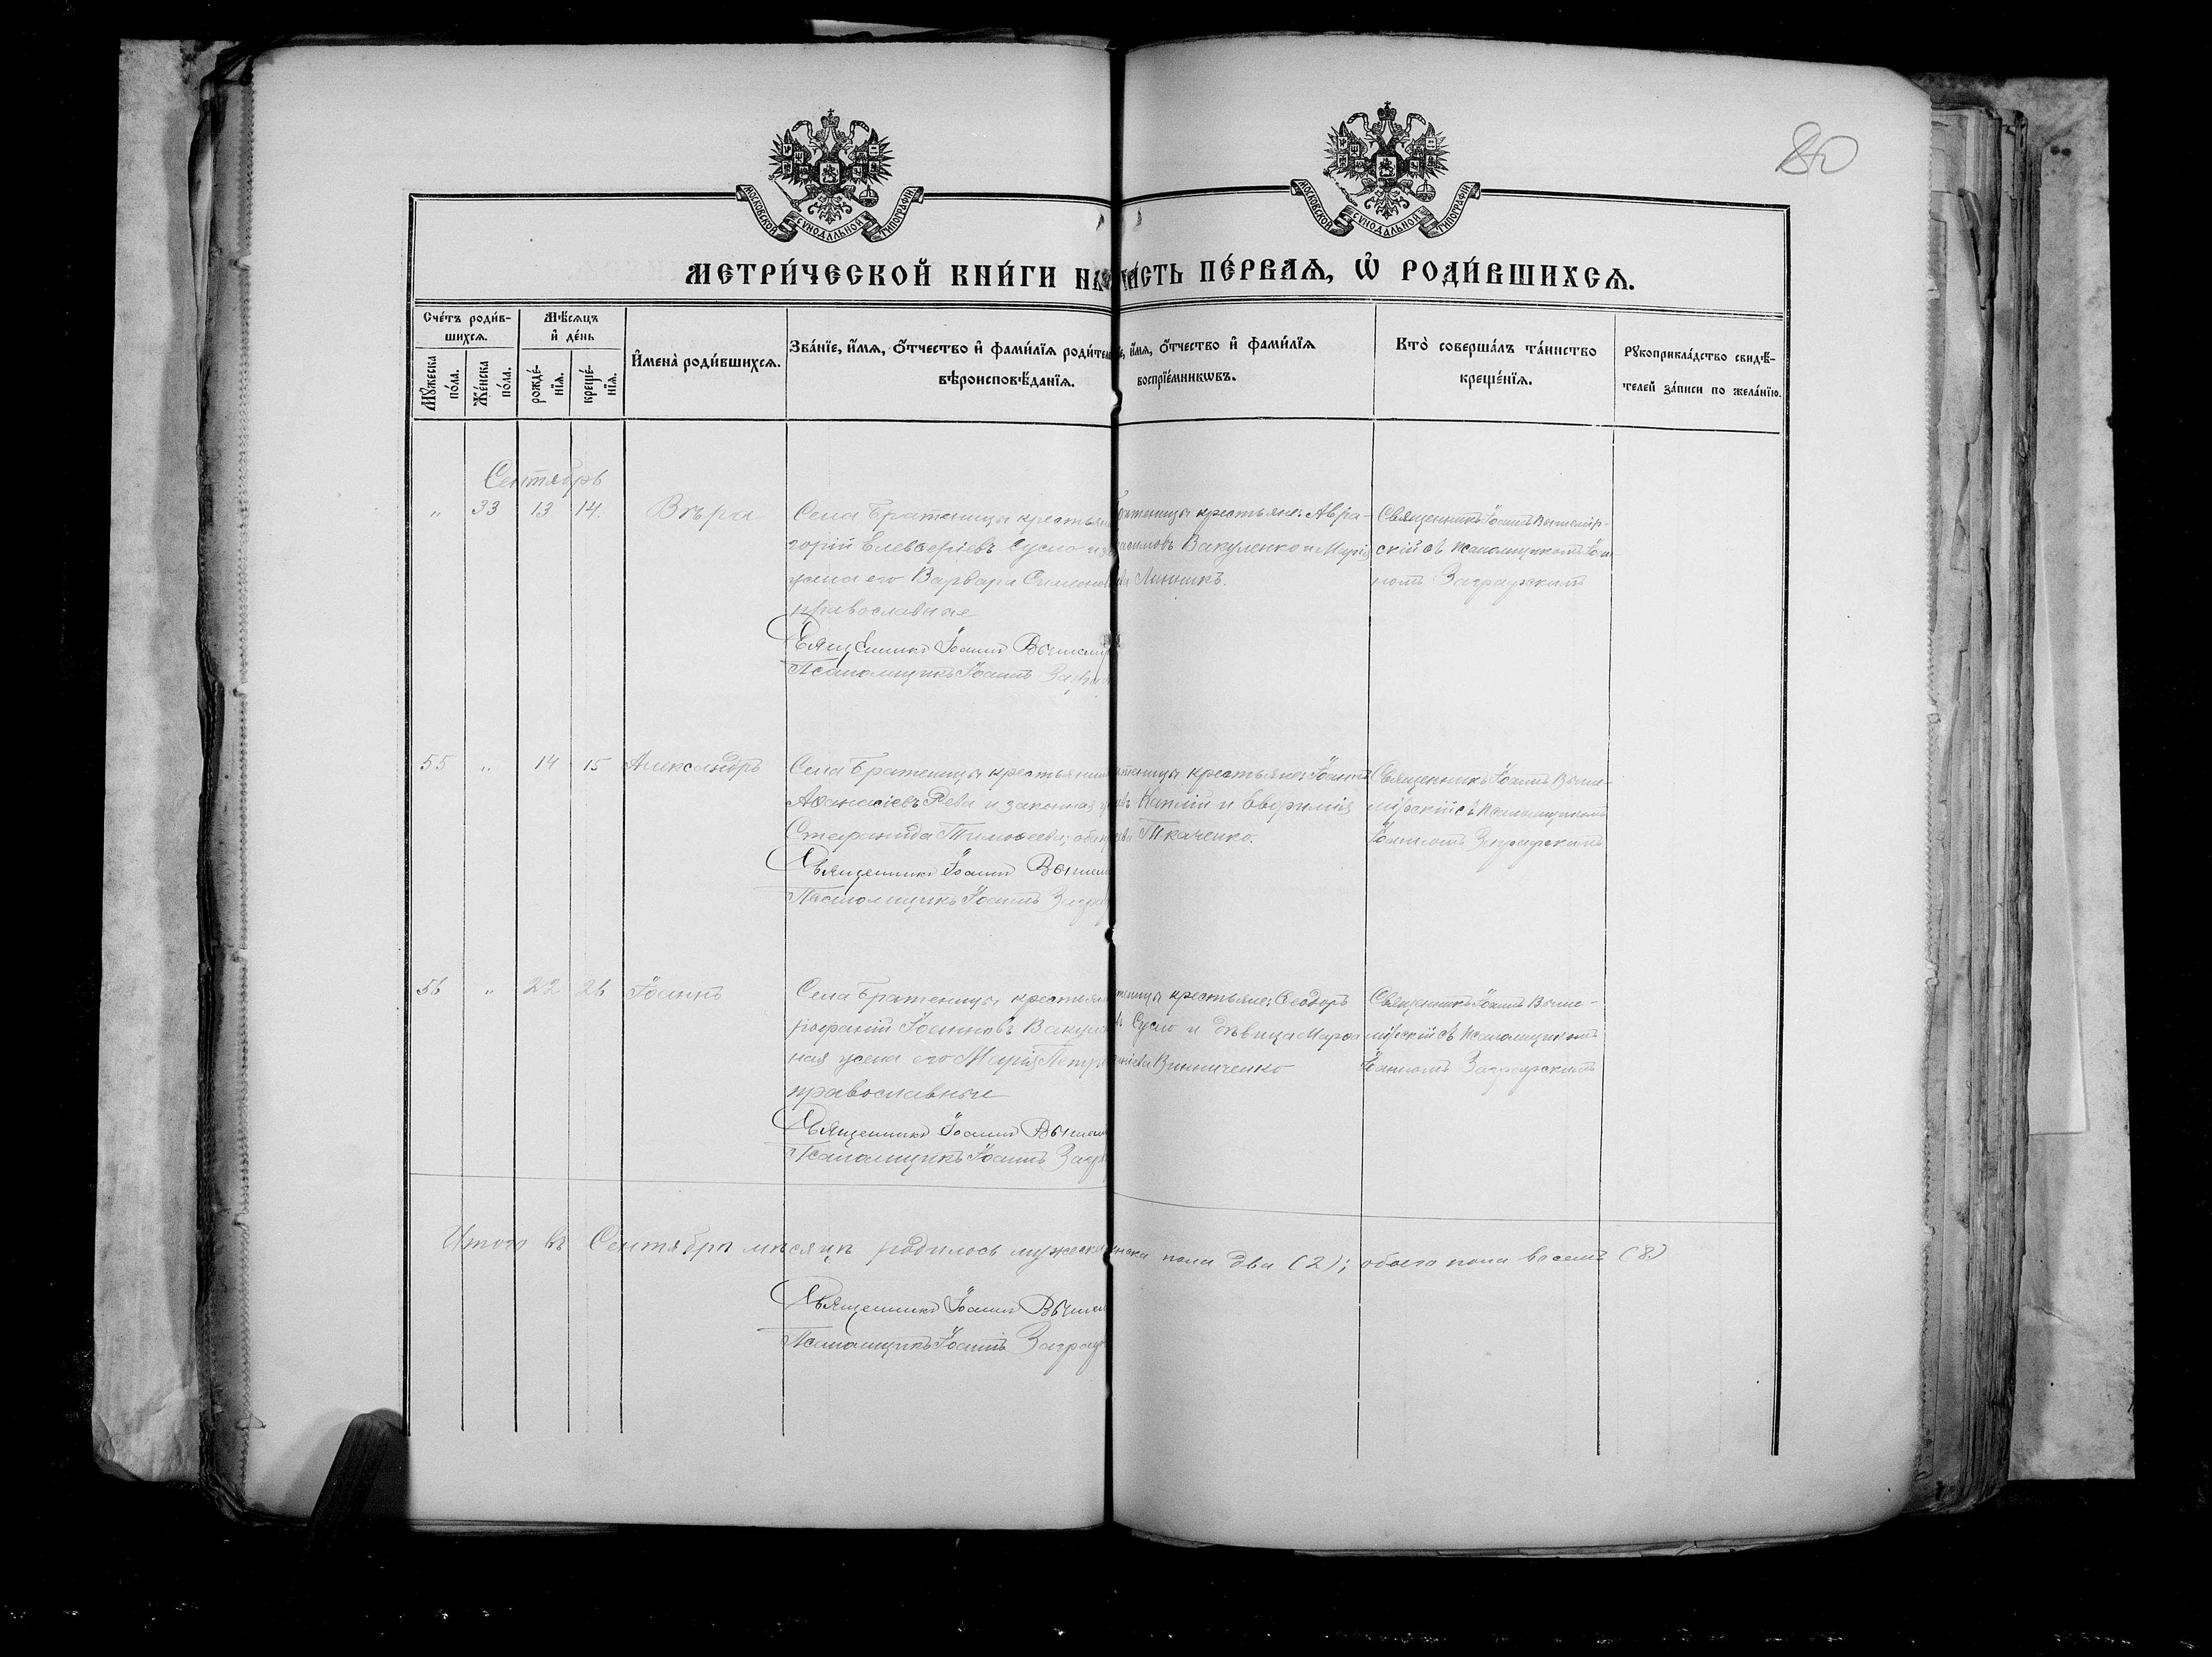 80
МОСКОВСКОЙ СѴНОДАЛЬНОЙ ТИПОГРАФІИ
МОСКОВСКОЙ СѴНОДАЛЬНОЙ ТИПОГРАФІИ
МЕТРИ́ЧЕСКОЙ КНИ́ГИ НА
ЧА́СТЬ ПЕ́РВАѦ, Ѽ РОДИ́ВШИХСѦ.
Сче́тъ роди́в-
шихсѧ.
Мѣ́сѧцъ
и҆ де́нь
Мꙋ́жеска по́ла.
Же́нска по́ла.
рожде́-
нїѧ.
креще́-
нїѧ.
И҆мена̀ роди́вшихсѧ.
Зва́нїе, и҆́мѧ, ѻ҆́тчество и҆ фами́лїѧ родите
вѣроисповѣ́данїѧ.
е, и҆́мѧ, ѻ҆́тчество и҆ фами́лїѧ
воспрїе́мникѡвъ.
Кто̀ соверша́лъ та́инство
креще́нїѧ.
Рꙋкоприкла́дство свидѣ́-
телей за́писи по жела́нїю.
Сентябрь
" 33 13 14. Вѣра
Села Братеницы крестьян
горій Елевѳеріевъ Сусло и за
жена его Варвара Симонов
православные
Священникъ Іоаннъ Вышеми
Псаломщикъ Іоаннъ Загра
Братеницы крестьяне: Авра-
Вакуленко и Марія
Священникъ Іоаннъ Вышемір-
скій съ псаломщикомъ Іоан
номъ Заграфскимъ
55 " 14 15 Александръ
Села Братеницы крестьянин
Аѳанасіевъ Рева и законная
Стефанида Тимоѳеева; оба
Священникъ Іоаннъ Вышем
Псаломщикъ Іоаннъ Загра
теницы крестьяне: Іоаннъ
и Евфимія
ева Ткаченко.
Священникъ Іоаннъ Выше-
мірскій съ псаломщикомъ
Іоанномъ Заграфскимъ
56 " 22 26 Іоаннъ
Села Братеницы крестьян
Іоанновъ Вакулен
ная жена его Марія Петро
православные
Священникъ Іоаннъ Вышем
Псаломщикъ Іоаннъ Загра
теницы крестьяне: Ѳеодоръ
Сусло и дѣвица Марѳа
Винниченко
Священникъ Іоаннъ Выше-
мірскій съ псаломщикомъ
Іоанномъ Заграфскимъ
Итого въ Сентябрѣ мѣсяцѣ родилось мужеск
енска пола два (2); обоего пола восемь (8)
Священникъ Іоаннъ Вышем
Псаломщикъ Іоаннъ Заграф